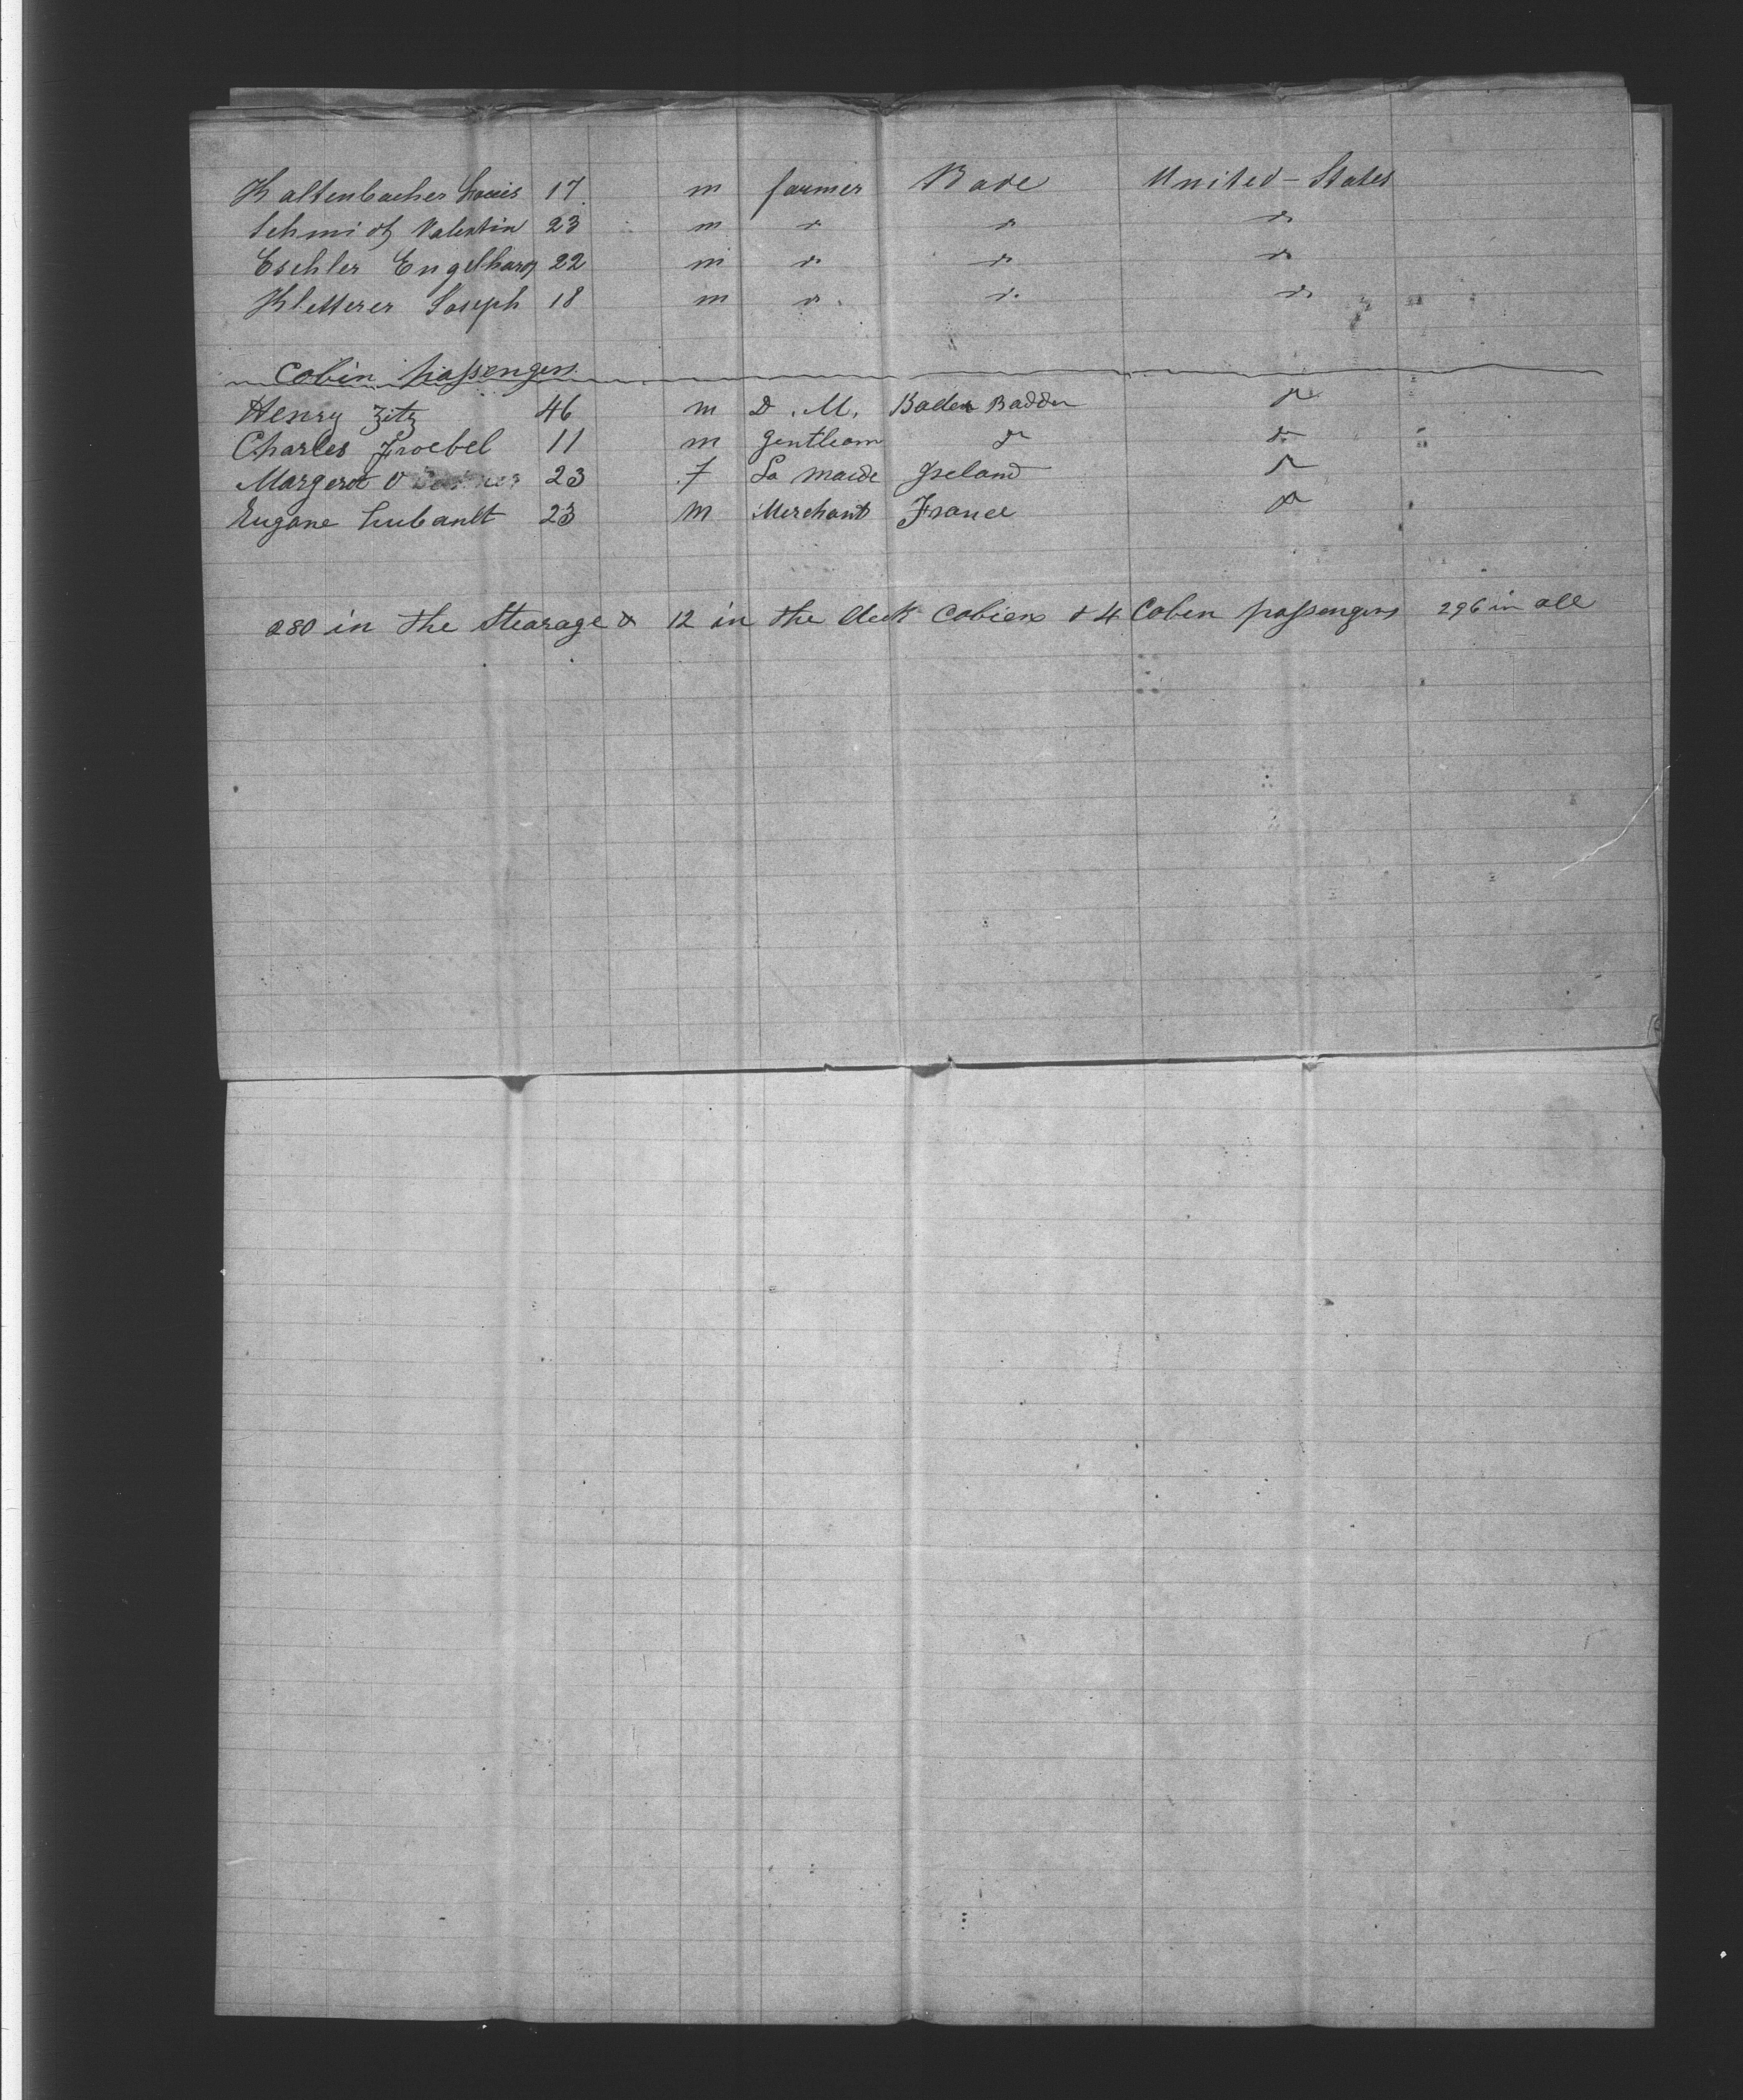 Kaltenbacher Louis 17 m farmer Bade United-States
Schmidt Valentin 23 m do do do
Eschler Engelhard 22 m do do do
Kletterer Joseph 18 m do do do
Cabin passengers
Henry Zitz 46 m D. M. Baden Badden do
Charles Froebel 11 m Gentleam do do
Margeret O 23 f La Maide Ireland do
Eugane 23 m Merchant France do
280 in the Stearage & 12 in the deck Cabien & 4 Caben passengers 296 in all